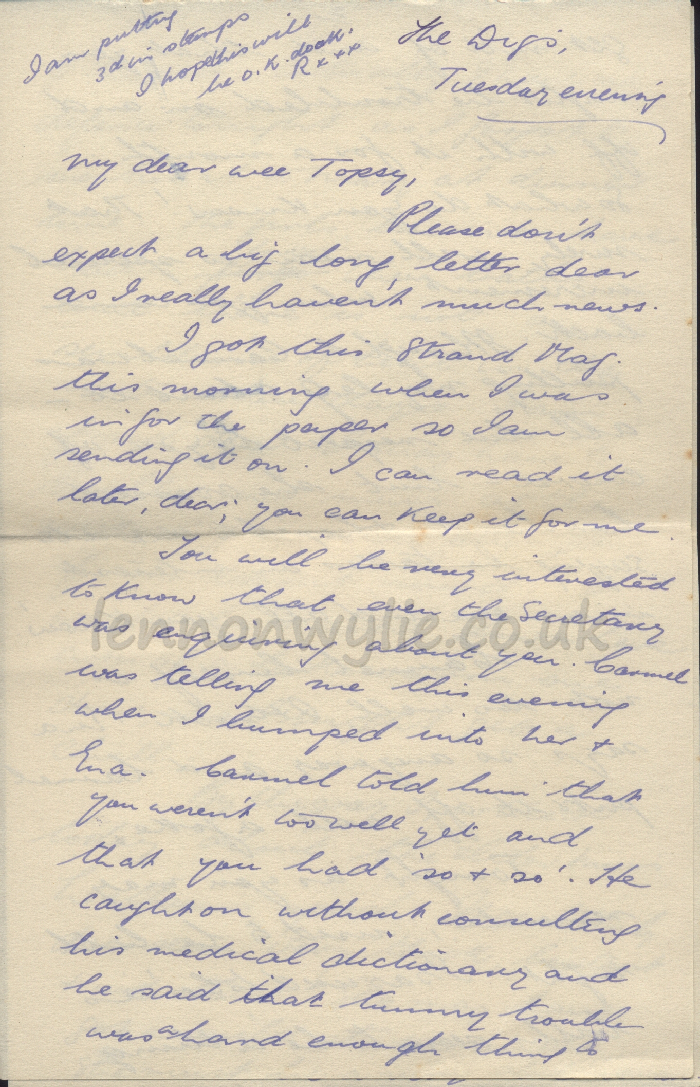 I am putting
3d in stamps
I hope this will
be O.K. deak.
R x x x
The Digs,
Tuesday evening
My dear wee Topsy,
Please don't
expect a big long letter dear
as I really haven't much news.
I got this Strand Mag.
this morning when I was
in for the paper so I am
sending it on. I can read it
later, dear; you can keep it for me.
You will be very interested
to know that even the Secretary
lennonwylie.co.uk
was enquiring about you. Carmel
was telling me this evening
when I bumped into her +
Ena. Carmel told him that
you weren't too well yet and
that you had 'so + so'. He
caught on without consulting
his medical dictionary and
he said that tummy trouble
was a hard enough thing to